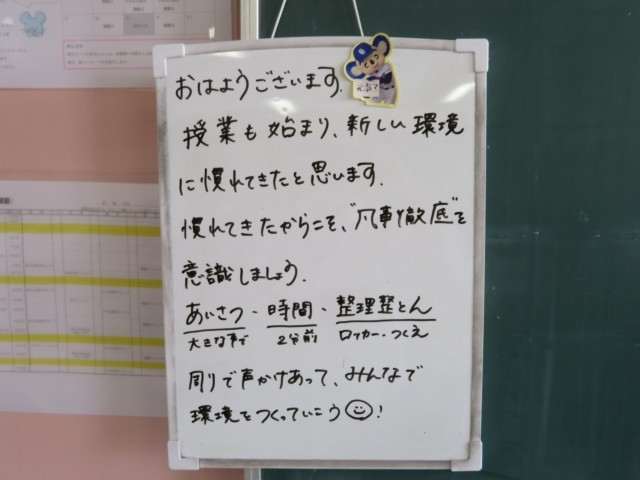 おはようございます.
元気?
授業も始まり、新しい環境
に慣れてきたと思います.
慣れてきたからこそ、"凡事徹底"を
意識しましょう.
あいさつ・時間・整理整とん
大きな声で 2分前 ロッカー・つくえ
周りで声かけあって、みんなで
環境をつくっていこう!